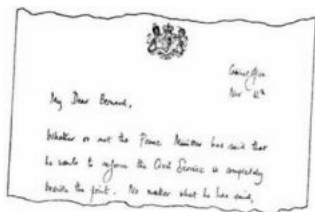 Cabinet Office
Nov 16th
My Dear Bernard,
Whether or not the Prime Minister has said that
he wants to reform the Civil Service is completely
beside the point. No matter what he has said,